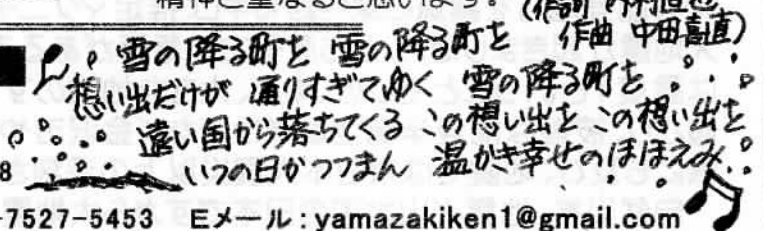 精神と重なると思います。
(作詞 内村直也
作曲 中田喜直)
雪の降る町を 雪の降る町を
想い出だけが 通りすぎてゆく 雪の降る町を
遠い国から落ちてくる この想い出を この想い出を
いつの日かつつまん 温かき幸せのほほえみ
8
-7527-5453 Eメール:yamazakiken1@gmail.com